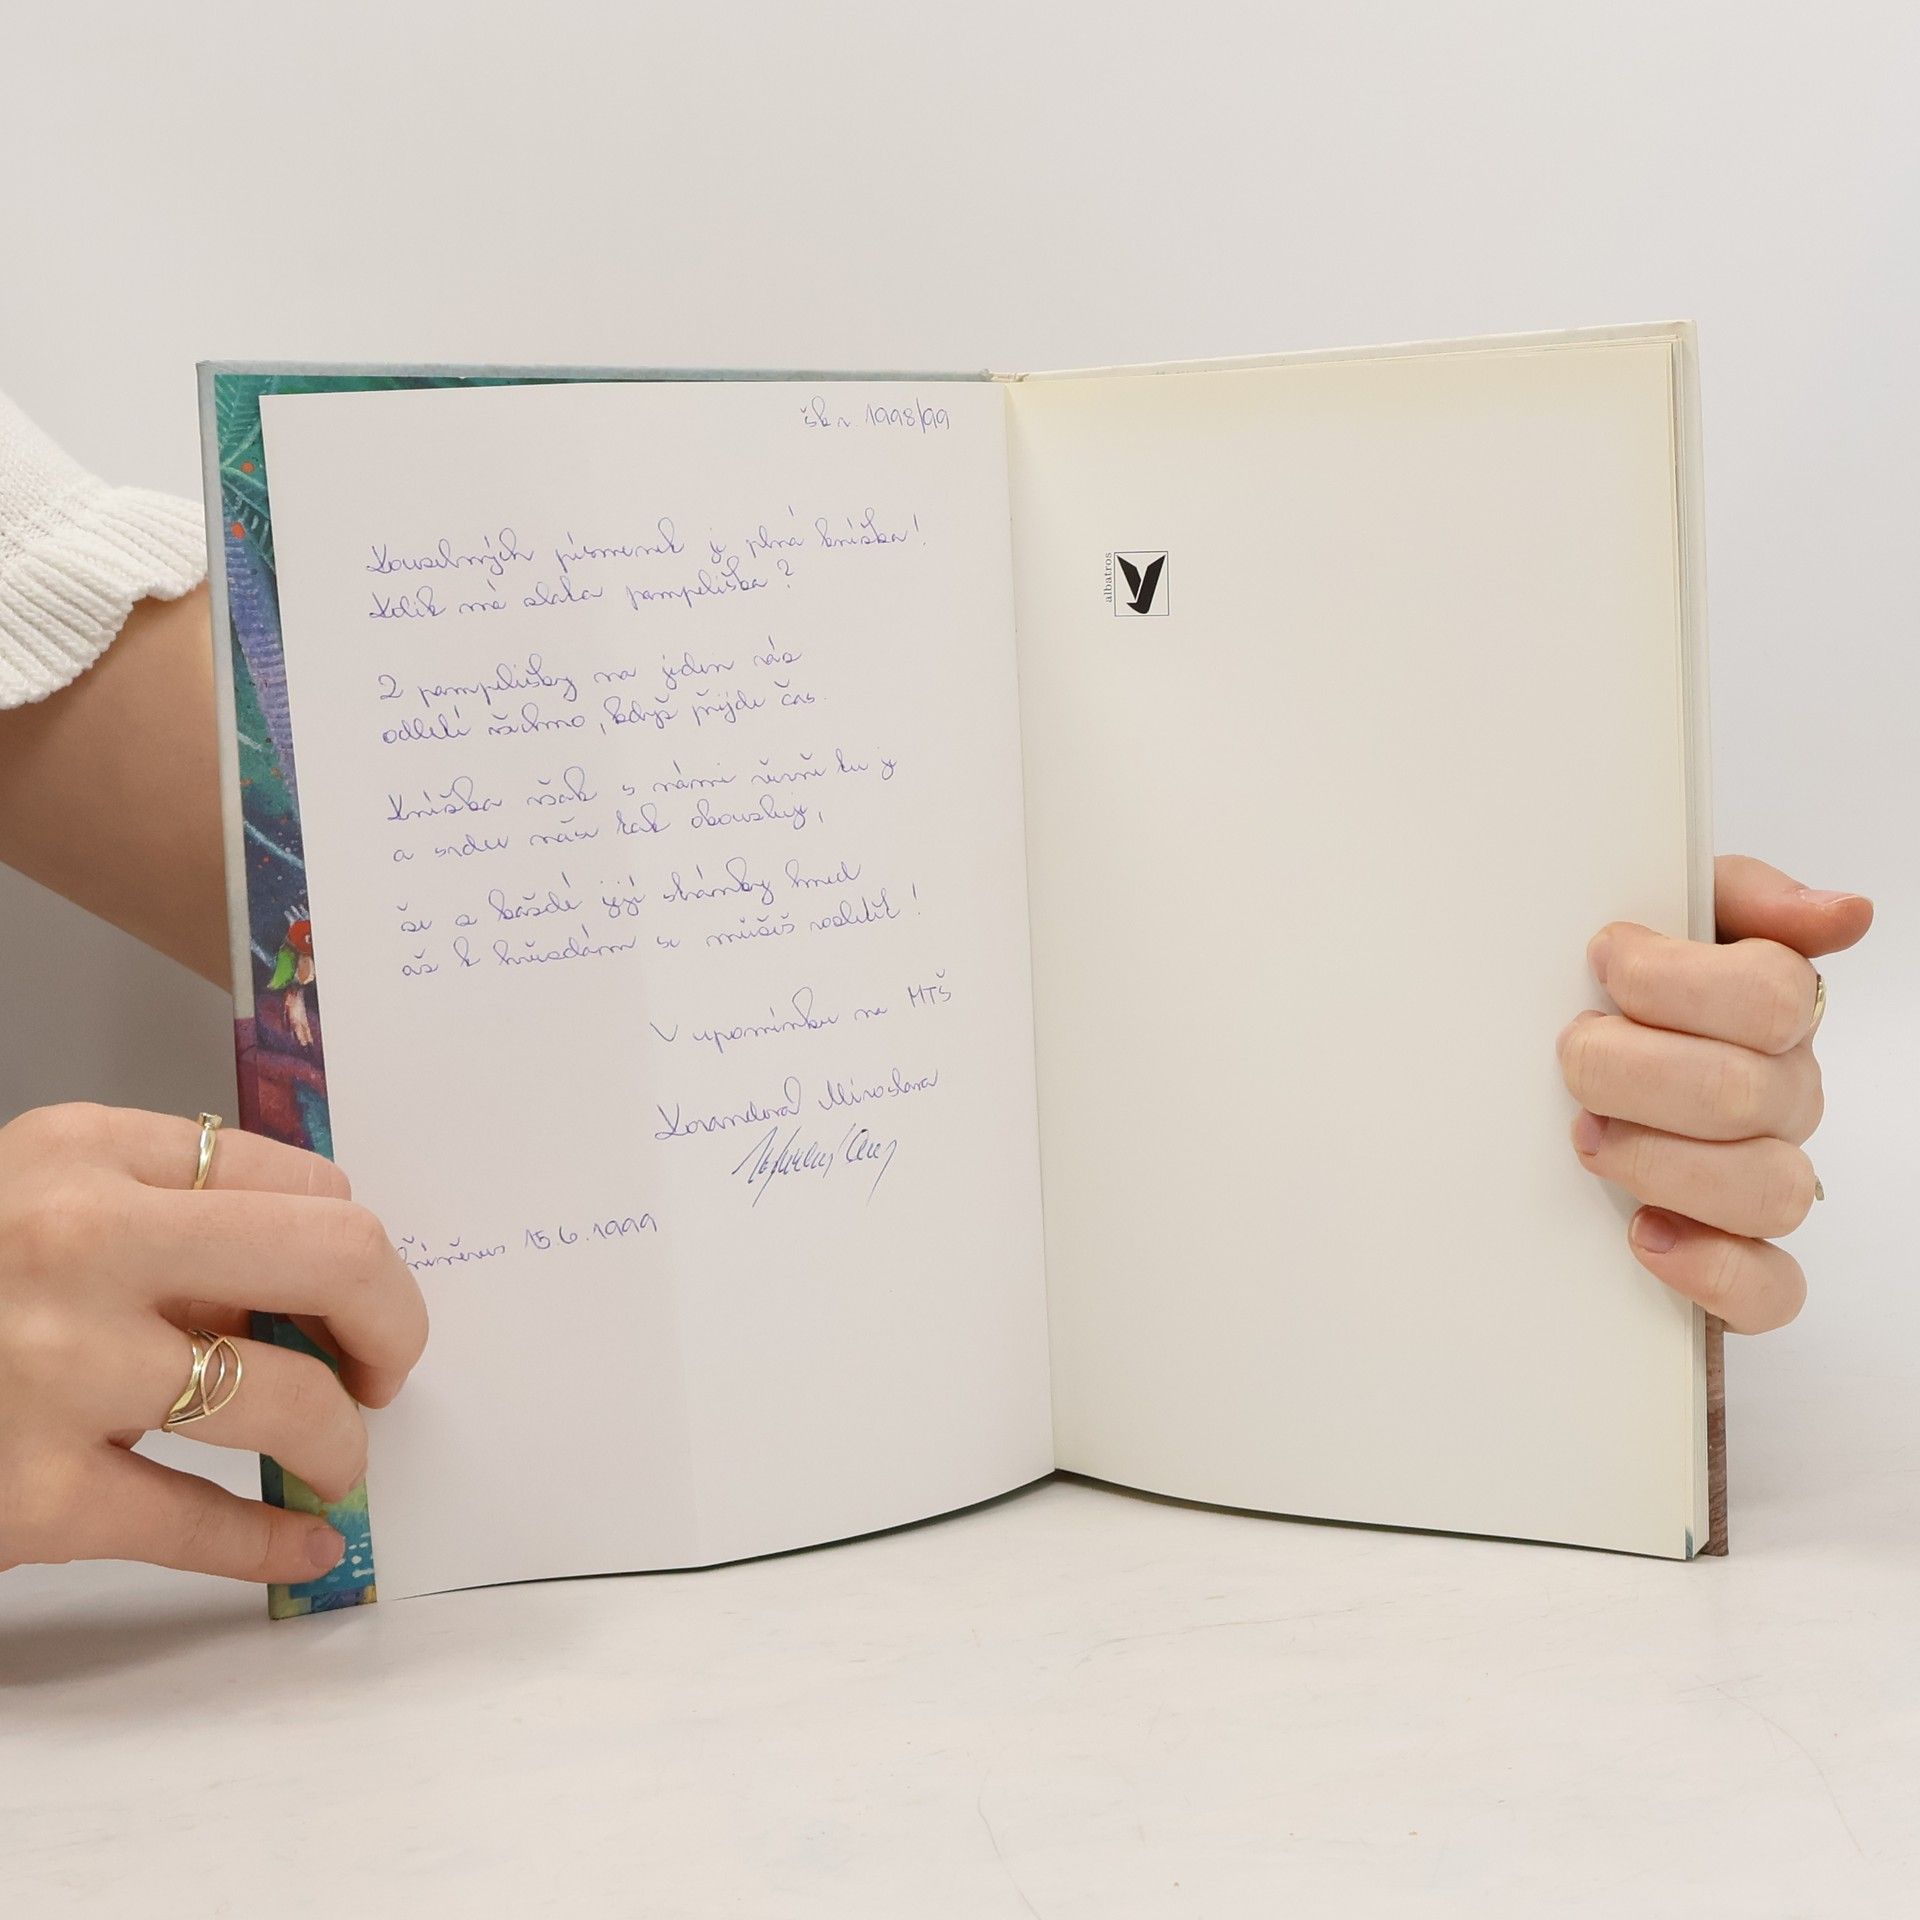 šk. r. 1998/99
Kouzelných písmenek je plná knížka!
Kolik má zlata pampeliška?
Z pampelišky na jeden ráz
odletí všechno, když přijde čas.
Knížka však s námi věrně tu je
a srdce naše tak okouzluje,
že z každé její stránky hned
až k hvězdám se můžeš rozletět!
V upomínku na MTŠ
Korandová Miroslava
15.6.1999
albatros